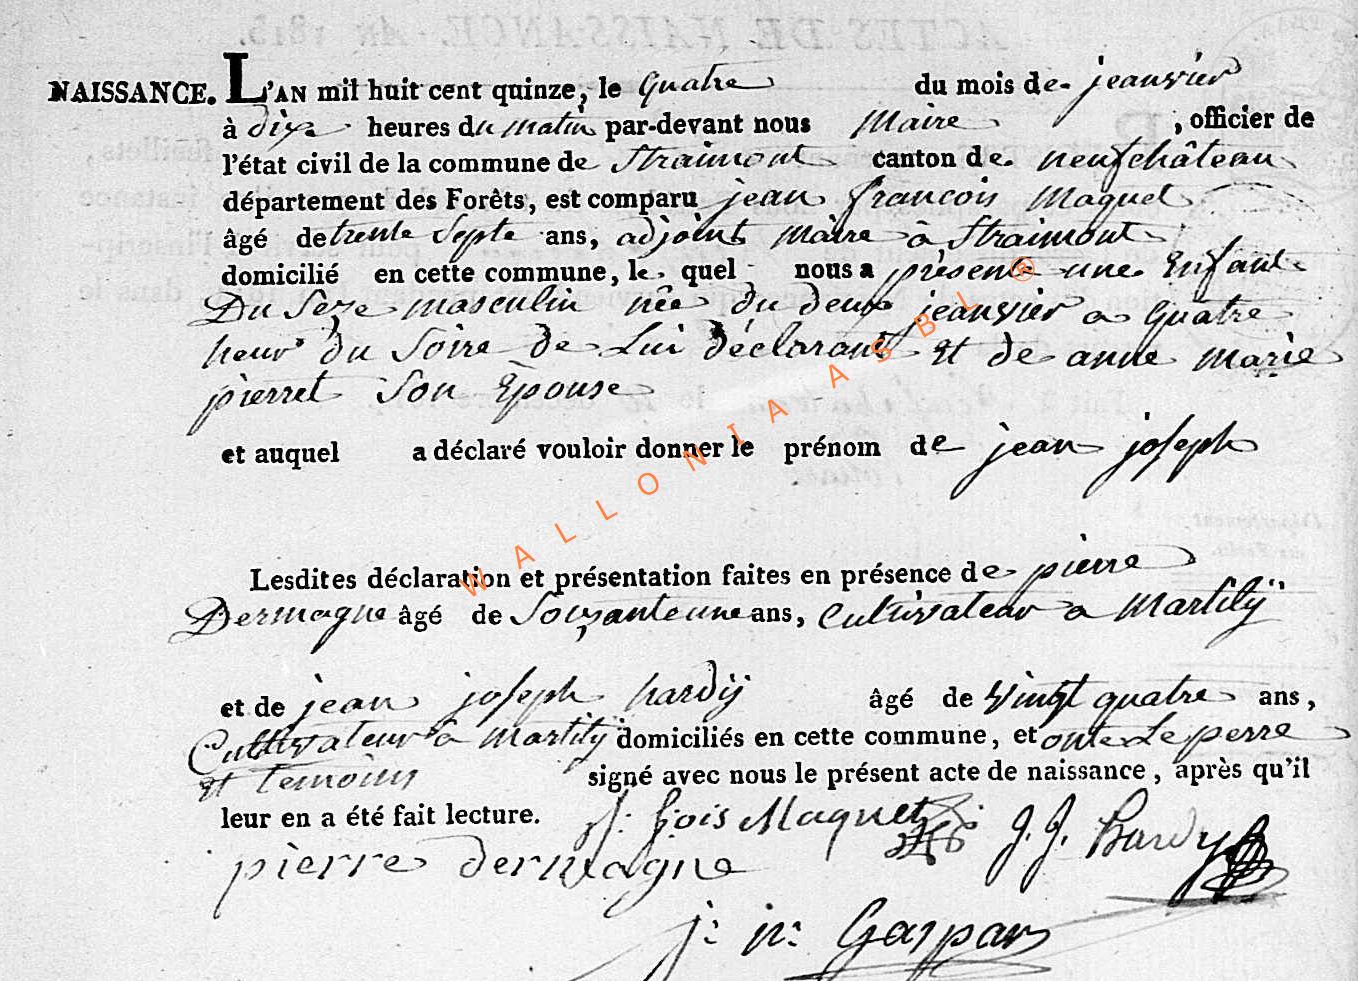 NAISSANCE. L'AN mil huit cent quinze, le quatre du mois de jeanvier
à dix heures du matin par-devant nous maire , officier de
l'état civil de la commune de Straimont canton de neufchâteau
département des Forêts, est comparu jean francois Maquet
âgé de trente septe ans, adjoint maire a Straimont
domicilié en cette commune, le quel nous a présenté une Enfant
Du Sexe masculin née du deux jeanvier a quatre
heur du Soire de Lui déclarant et de anne marie
pierret Son Epouse
et auquel a déclaré vouloir donner le prénom de jean joseph
Lesdites déclaration et présentation faites en présence de pierre
Dermagne âgé de Soixante une ans, Cultivateur a Martilÿ
et de jean joseph hardÿ âgé de vingt quatre ans,
Cultivateur a Martilÿ domiciliés en cette commune, et onts Le perre
et temoins signé avec nous le présent acte de naissance, après qu'il
leur en a été fait lecture. j: fjois Maquet J. J. hardy
pierre dermagne
j: n: Gaspar
WALLONIA ASBL ®